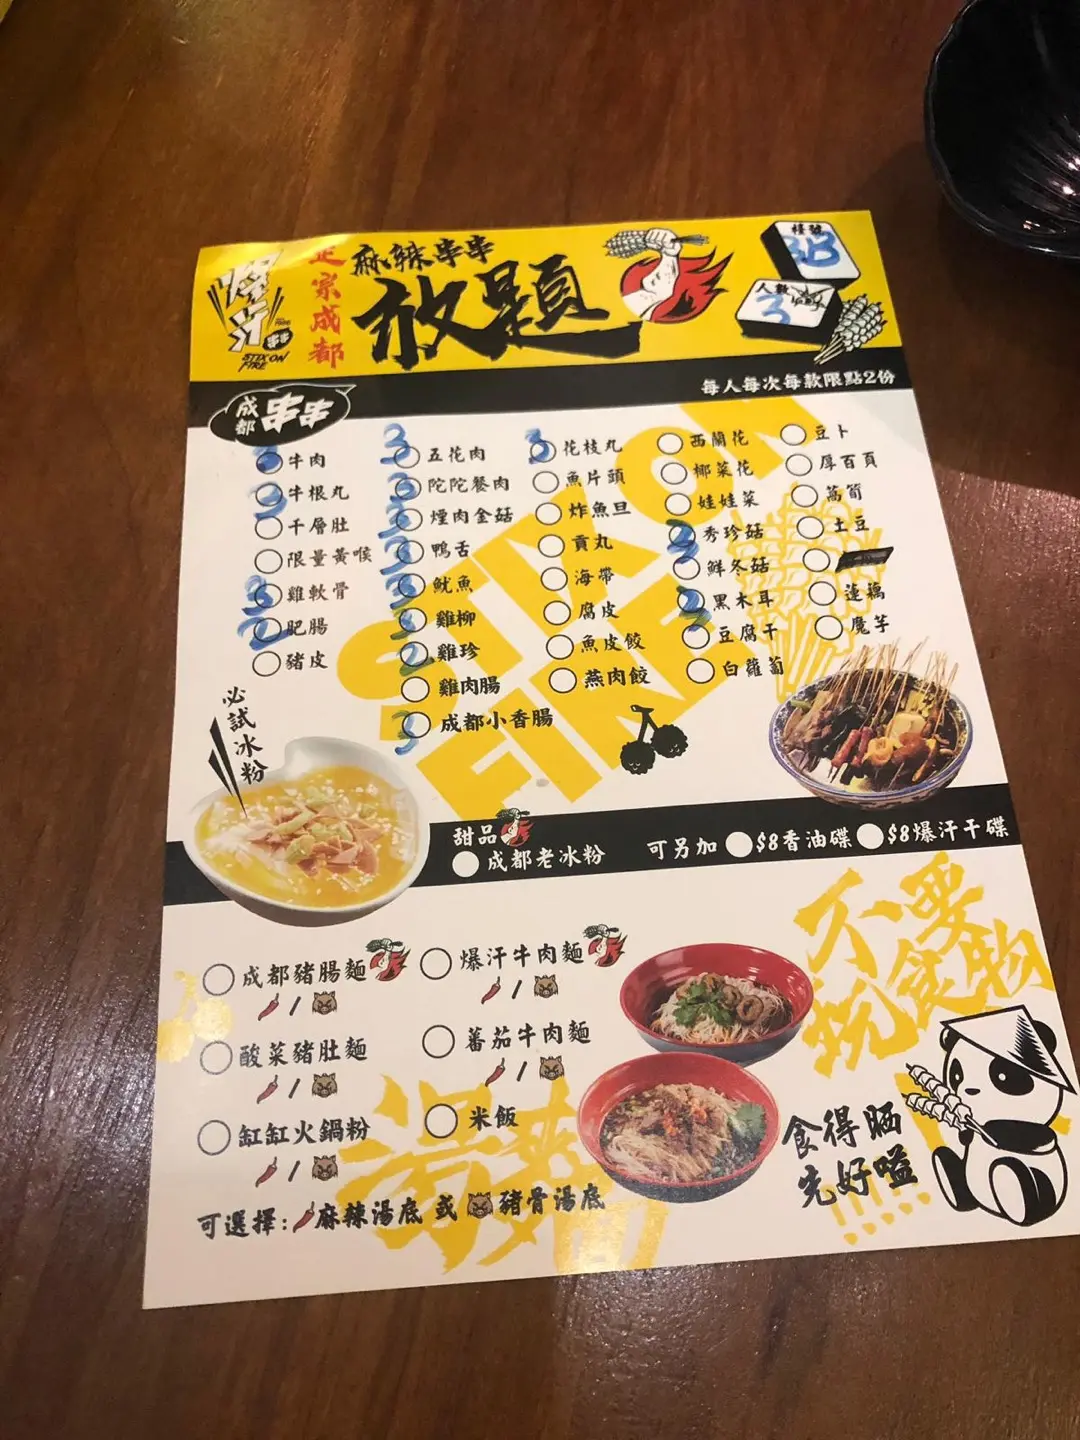 爆汁
串串
STIX ON FIRE
正宗成都
麻辣串串
放題
檯號
3B
人數
3
每人每次每款限點2份
成都串串
3 牛肉
3 牛根丸
千層肚
限量黃喉
3 雞軟骨
2 肥腸
豬皮
3 五花肉
3 陀陀餐肉
3 煙肉金菇
3 鴨舌
3 魷魚
3 雞柳
2 雞珍
雞肉腸
3 成都小香腸
3 花枝丸
魚片頭
炸魚旦
貢丸
海帶
腐皮
魚皮餃
燕肉餃
西蘭花
椰菜花
娃娃菜
3 秀珍菇
鮮冬菇
3 黑木耳
豆腐干
白蘿蔔
豆卜
厚百頁
萵筍
土豆
蓮藕
魔芋
STIX ON FIRE
必試冰粉
甜品
成都老冰粉
可另加 $8香油碟 $8爆汗干碟
成都豬腸麵
/
爆汗牛肉麵
/
酸菜豬肚麵
/
蕃茄牛肉麵
/
缸缸火鍋粉
/
米飯
可選擇:麻辣湯底 或 豬骨湯底
不要玩食物
食得晒
先好嗌
!!!!!